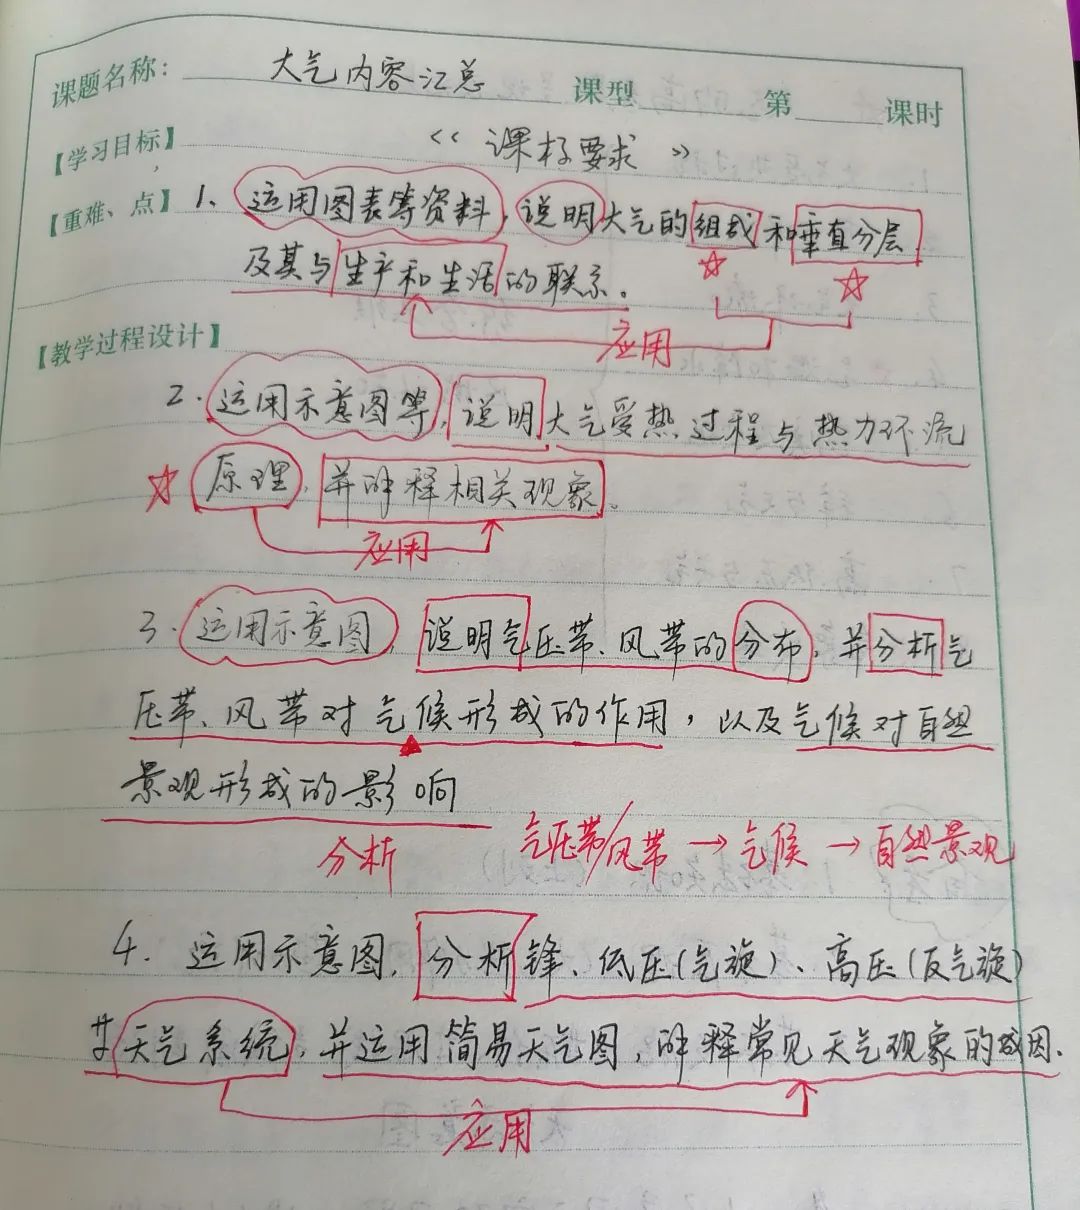 课题名称：大气内容汇总 课型 第 课时
【学习目标】 《课标要求》
【重难、点】 1、运用图表等资料，说明大气的组成和垂直分层
及其与生产和生活的联系。
应用
【教学过程设计】
2.运用示意图等，说明大气受热过程与热力环流
原理，并解释相关现象。
应用
3.运用示意图，说明气压带、风带的分布，并分析气
压带、风带对气候形成的作用，以及气候对自然
景观形成的影响
分析 气压带/风带→气候→自然景观
4.运用示意图，分析锋、低压(气旋)、高压(反气旋)
等天气系统，并运用简易天气图，解释常见天气现象的成因.
应用